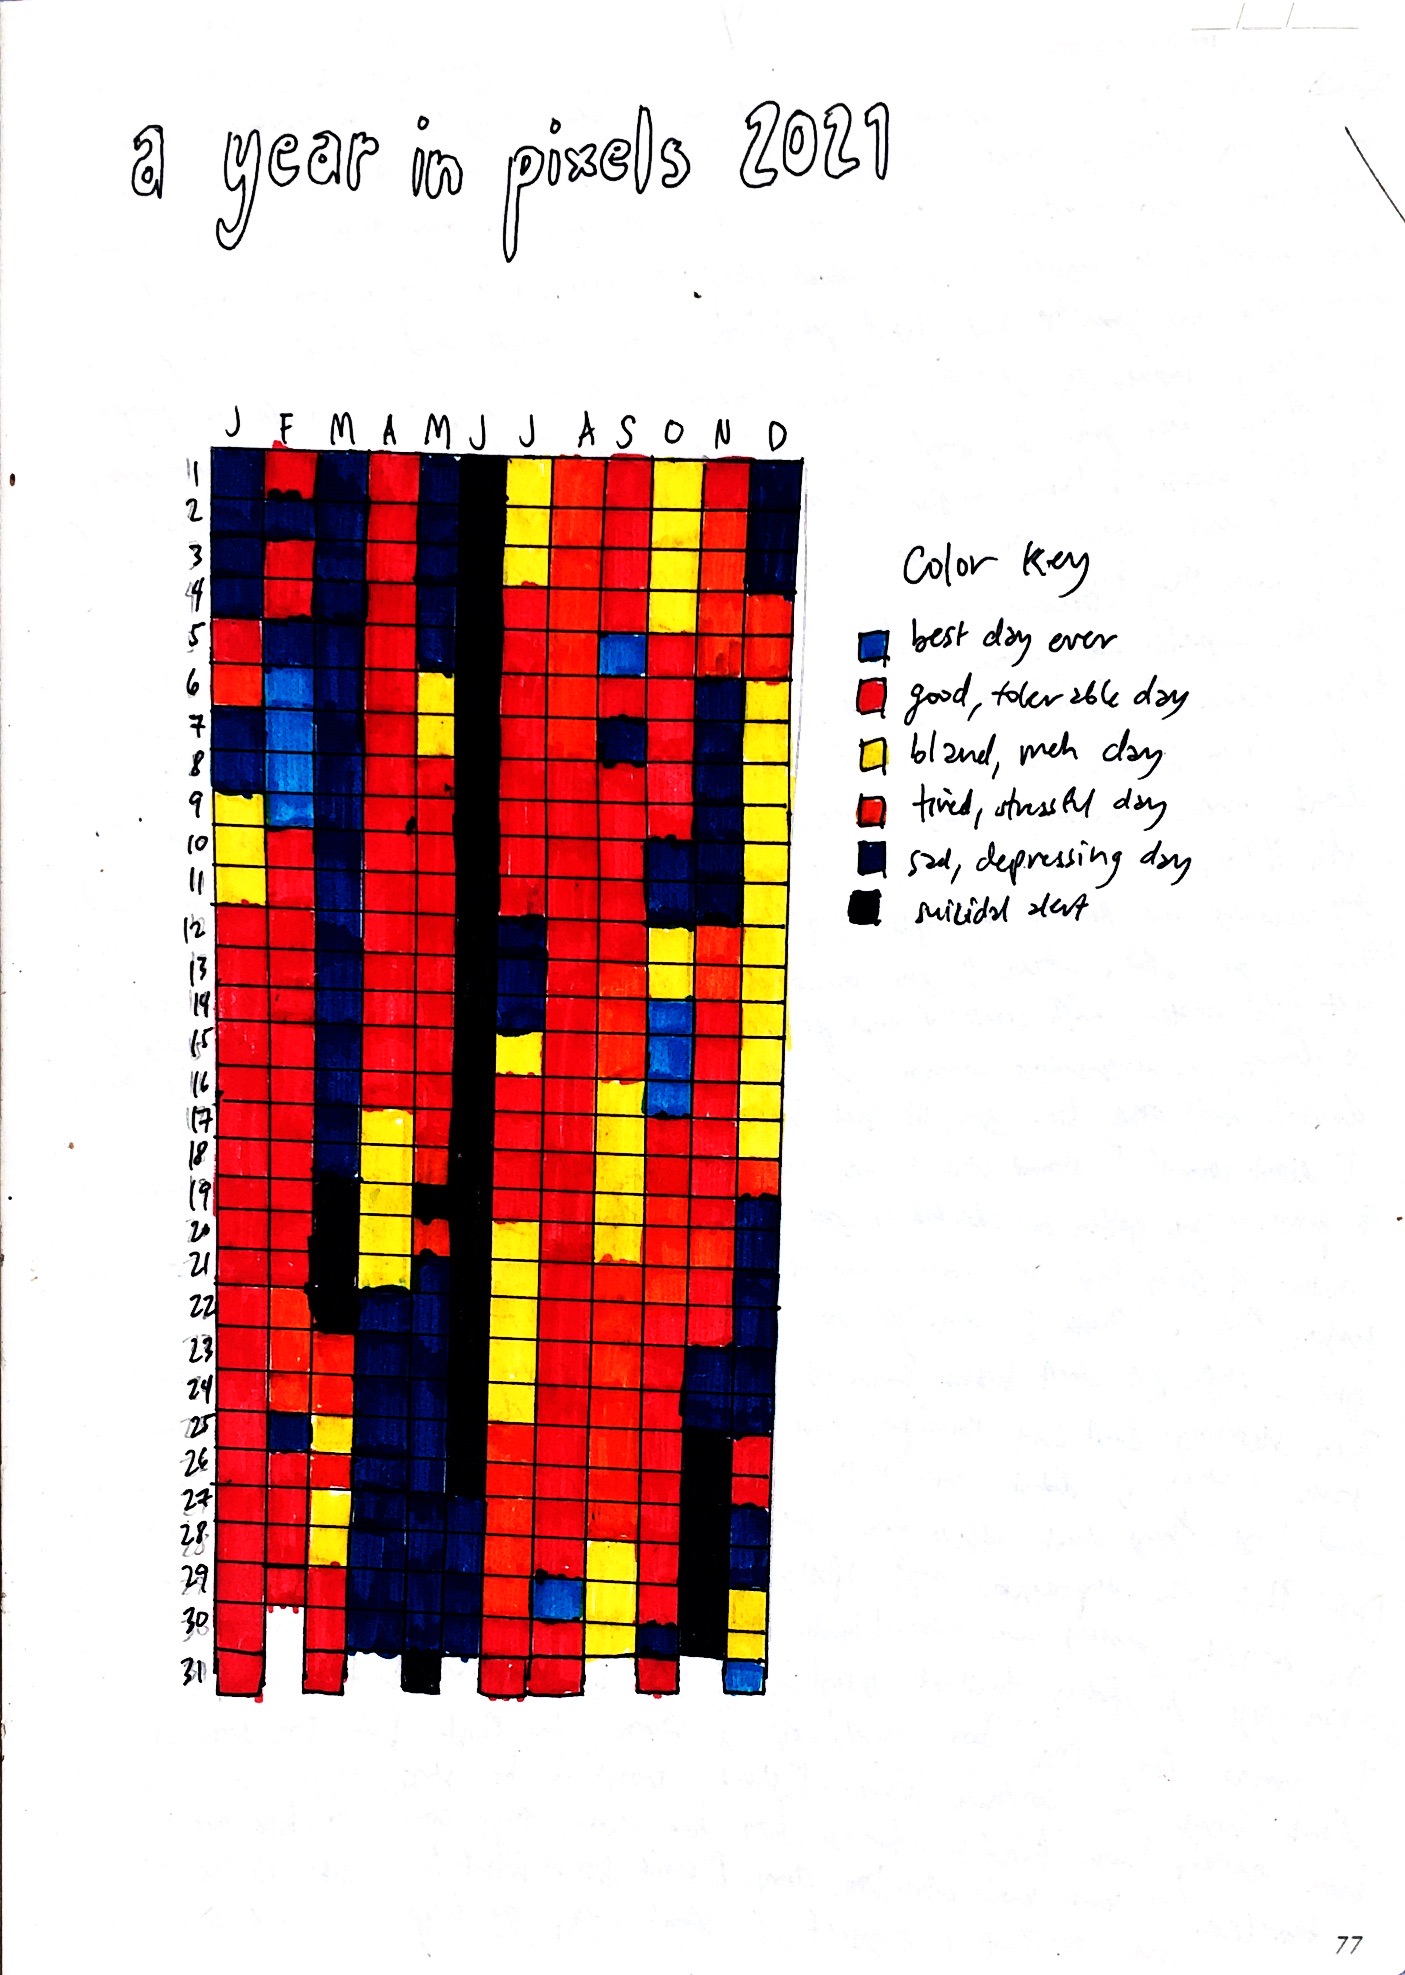 a year in pixels 2021
J F M A M J J A S O N D
1
2
3
4
5
6
7
8
9
10
11
12
13
14
15
16
17
18
19
20
21
22
23
24
25
26
27
28
29
30
31
Color Key
best day ever
good, tolerable day
bland, meh day
tired, stressful day
sad, depressing day
suicidal alert
77